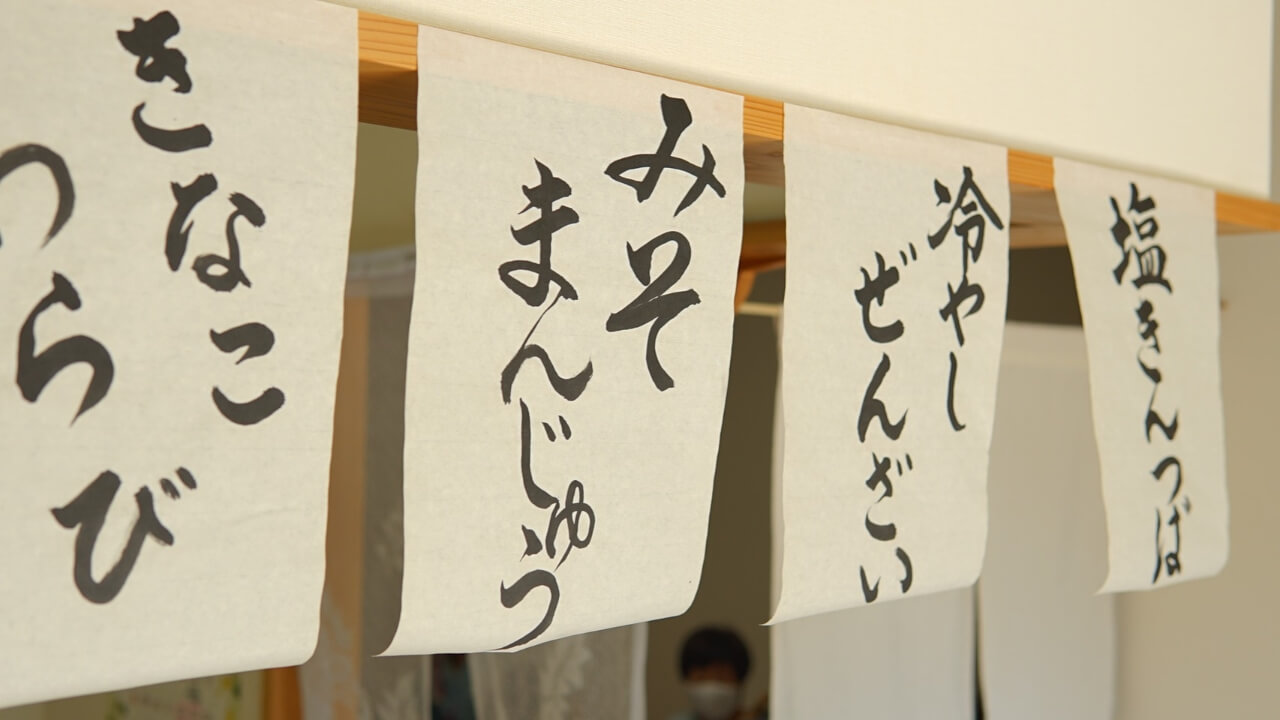 塩きんつば
冷やし
ぜんざい
みそ
まんじゅう
きなこ
わらび